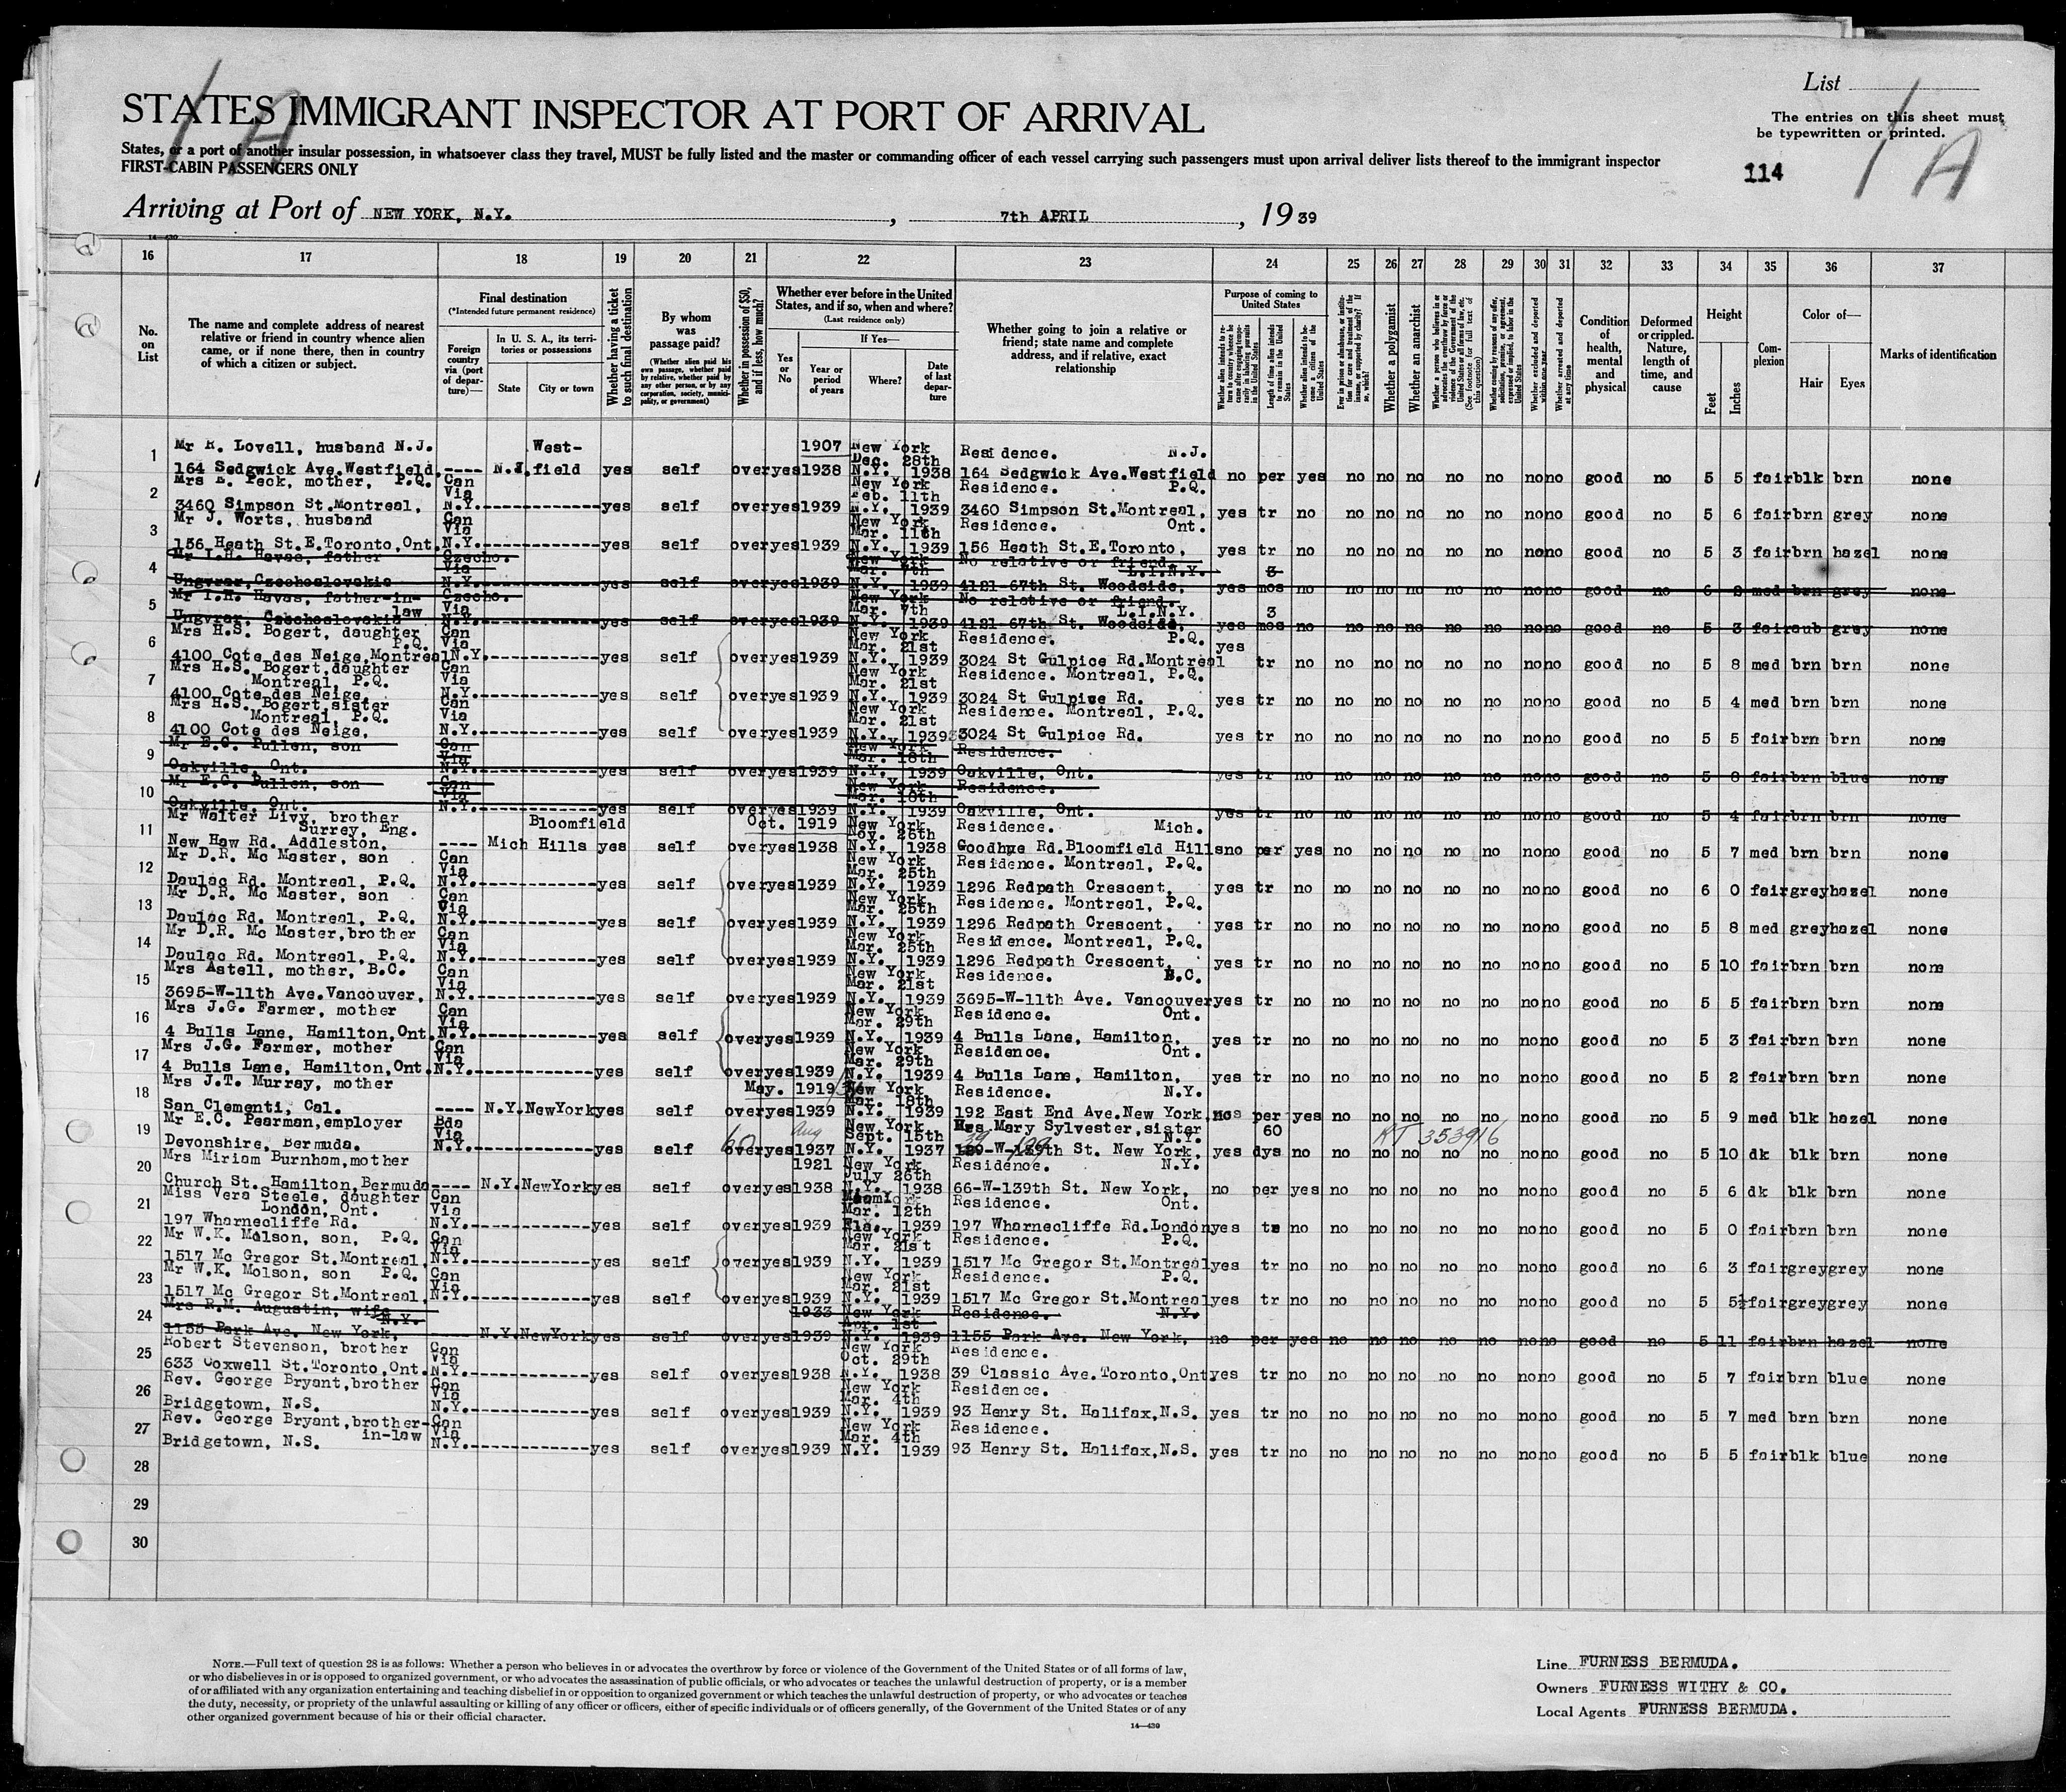 List
1 A
1 A
STATES IMMIGRANT INSPECTOR AT PORT OF ARRIVAL
The entries on this sheet must
be typewritten or printed.
States, or a port of another insular possession, in whatsoever class they travel, MUST be fully listed and the master or commanding officer of each vessel carrying such passengers must upon arrival deliver lists thereof to the immigrant inspector
FIRST-CABIN PASSENGERS ONLY
114
Arriving at Port of NEW YORK, N.Y. , 7th APRIL , 19 39
14—430
16 17 18 19 20 21 22 23 24 25 26 27 28 29 30 31 32 33 34 35 36 37
No. on List
The name and complete address of nearest relative or friend in country whence alien came, or if none there, then in country of which a citizen or subject.
Final destination
(*Intended future permanent residence)
Foreign country via (port of departure)—
In U. S. A., its territories or possessions
State
City or town
Whether having a ticket to such final destination
By whom was passage paid?
(Whether alien paid his own passage, whether paid by relative, whether paid by any other person, or by any corporation, society, municipality, or government)
Whether in possession of $50, and if less, how much?
Whether ever before in the United States, and if so, when and where?
(Last residence only)
Yes or No
If Yes—
Year or period of years
Where?
Date of last departure
Whether going to join a relative or friend; state name and complete address, and if relative, exact relationship
Purpose of coming to United States
Length of time alien intends to remain in the United States
Whether alien intends to become a citizen of the United States
Whether a polygamist
Whether an anarchist
Whether arrested and deported at any time
Condition of health, mental and physical
Deformed or crippled. Nature, length of time, and cause
Height
Feet
Inches
Complexion
Color of—
Hair
Eyes
Marks of identification
1 Mr R. Lovell, husband N.J. West- 1907 New York Residence. N.J.
Dec. 28th
164 Sedgwick Ave.Westfield. ---- N.J. field yes self over yes 1938 N.Y. 1938 164 Sedgwick Ave.Westfield no per yes no no no no no no no good no 5 5 fair blk brn none
2 Mrs E. Peck, mother, P.Q. Can Via New York Feb. 11th Residence. P.Q.
3460 Simpson St.Montreal, N.Y. yes self over yes 1939 N.Y. 1939 3460 Simpson St.Montreal, yes tr no no no no no no no no good no 5 6 fair brn grey none
3 Mr J. Worts, husband Can Via New York Mar. 11th Residence. Ont.
156 Heath St.E.Toronto,Ont. N.Y. yes self over yes 1939 N.Y. 1939 156 Heath St.E.Toronto, yes tr no no no no no no no no good no 5 3 fair brn hazel none
4 Mr I.H. Havas, father Czecho. Via New York Mar. 7th No relative or friend. L.I.N.Y. 3
Ungvrar,Czechoslovakia N.Y. yes self over yes 1939 N.Y. 1939 4121-67th St. Woodside, yes mos no no no no no no no no good no 6 med brn grey none
5 Mr I.H. Havas, father-in-law Czecho. Via New York Mar. 7th No relative or friend. L.I.N.Y. 3
Ungvrar, Czechoslovakia N.Y. yes self over yes 1939 N.Y. 1939 4121-67th St. Woodside, yes mos no no no no no no no no good no 5 3 fair aub grey none
6 Mrs H.S. Bogert, daughter P.Q. Can Via New York Mar. 21st Residence. P.Q. yes
4100 Cote des Neige,Montreal N.Y. yes self over yes 1939 N.Y. 1939 3024 St Gulpice Rd.Montreal tr no no no no no no no no good no 5 8 med brn brn none
7 Mrs H.S. Bogert,daughter Montreal, P.Q. Can Via New York Mar. 21st Residence. Montreal, P.Q.
4100 Cote des Neige, N.Y. yes self over yes 1939 N.Y. 1939 3024 St Gulpice Rd. yes tr no no no no no no no no good no 5 4 med brn brn none
8 Mrs H.S. Bogert,sister Montreal, P.Q. Can Via New York Mar. 21st Residence. Montreal, P.Q.
4100 Cote des Neige, N.Y. yes self over yes 1939 N.Y. 1939 3024 St Gulpice Rd. yes tr no no no no no no no no good no 5 5 fair brn brn none
9 Mr E.C. Pullen, son Can Via New York Mar. 18th Residence.
Oakville, Ont. N.Y. yes self over yes 1939 N.Y. 1939 Oakville, Ont. yes tr no no no no no no no no good no 5 8 fair brn blue none
10 Mr E.C. Pullen, son Can Via New York Mar. 18th Residence.
Oakville, Ont. N.Y. yes self over yes 1939 N.Y. 1939 Oakville, Ont. yes tr no no no no no no no no good no 5 4 fair brn brn none
11 Mr Walter Livy, brother Surrey, Eng. Bloomfield Oct. 1919 New York Nov. 26th Residence. Mich.
New Haw Rd. Addleston, ---- Mich Hills yes self over yes 1938 N.Y. 1938 Goodhue Rd.Bloomfield Hills no per yes no no no no no no no good no 5 7 med brn brn none
12 Mr D.R. Mc Master, son Can Via New York Mar. 25th Residence. Montreal, P.Q.
Daulac Rd. Montreal, P.Q. N.Y. yes self over yes 1939 N.Y. 1939 1296 Redpath Crescent, yes tr no no no no no no no no good no 6 0 fair grey hazel none
13 Mr D.R. Mc Master, son Can Via New York Mar. 25th Residence. Montreal, P.Q.
Daulac Rd. Montreal, P.Q. N.Y. yes self over yes 1939 N.Y. 1939 1296 Redpath Crescent, yes tr no no no no no no no no good no 5 8 med grey hazel none
14 Mr D.R. Mc Master,brother Can Via New York Mar. 25th Residence. Montreal, P.Q.
Daulac Rd. Montreal, P.Q. N.Y. yes self over yes 1939 N.Y. 1939 1296 Redpath Crescent, yes tr no no no no no no no no good no 5 10 fair brn brn none
15 Mrs Astell, mother, B.C. Can Via New York Mar. 21st Residence. B.C.
3695-W-11th Ave.Vancouver. N.Y. yes self over yes 1939 N.Y. 1939 3695-W-11th Ave. Vancouver yes tr no no no no no no no no good no 5 5 fair brn brn none
16 Mrs J.G. Farmer, mother Can Via New York Mar. 29th Residence. Ont.
4 Bulls Lane, Hamilton,Ont. N.Y. yes self over yes 1939 N.Y. 1939 4 Bulls Lane, Hamilton, yes tr no no no no no no no no good no 5 3 fair brn brn none
17 Mrs J.G. Farmer, mother Can Via New York Mar. 29th Residence. Ont.
4 Bulls Lane, Hamilton,Ont. N.Y. yes self over yes 1939 N.Y. 1939 4 Bulls Lane, Hamilton, yes tr no no no no no no no no good no 5 2 fair brn brn none
18 Mrs J.T. Murray, mother May. 1919 New York Mar. 18th Residence. N.Y.
San Clementi, Cal. ---- N.Y. New York yes self over yes 1939 N.Y. 1939 192 East End Ave.New York. per yes no no no no no no no good no 5 9 med blk hazel none
19 Mr E.C. Pearman,employer Bda Via Aug New York Sept. 15th Mrs Mary Sylvester,sister N.Y. 60 RT 353916
Devonshire, Bermuda. N.Y. yes self 60 over yes 1937 N.Y. 1937 St. New York, yes dys no no no no no no no no good no 5 10 dk blk brn none
20 Mrs Miriam Burnham,mother 1921 New York July 26th Residence. N.Y.
Church St. Hamilton,Bermuda ---- N.Y. New York yes self over yes 1938 N.Y. 1938 66-W-139th St. New York, no per yes no no no no no no no good no 5 6 dk blk brn none
21 Miss Vera Steele, daughter London, Ont. Can Via Miami Mar. 12th Residence. Ont.
197 Wharnecliffe Rd. N.Y. yes self over yes 1939 Fla. 1939 197 Wharnecliffe Rd.London yes tr no no no no no no no no good no 5 0 fair brn brn none
22 Mr W.K. Molson, son, P.Q. Can Via New York Mar. 21st Residence. P.Q.
1517 Mc Gregor St.Montreal, N.Y. yes self over yes 1939 N.Y. 1939 1517 Mc Gregor St.Montreal yes tr no no no no no no no no good no 6 3 fair grey grey none
23 Mr W.K. Molson, son P.Q. Can Via New York Mar. 21st Residence. P.Q.
1517 Mc Gregor St.Montreal, N.Y. yes self over yes 1939 N.Y. 1939 1517 Mc Gregor St.Montreal yes tr no no no no no no no no good no 5 5½ fair grey grey none
24 Mrs R.M. Augustin, wife N.Y. 1933 New York Apr. 1st Residence. N.Y.
1155 Park Ave. New York, ---- N.Y. New York yes self over yes 1939 N.Y. 1939 1155 Park Ave. New York, no per yes no no no no no no no good no 5 11 fair brn hazel none
25 Robert Stevenson, brother Can Via New York Oct. 29th Residence.
633 Coxwell St.Toronto,Ont. N.Y. yes self over yes 1938 N.Y. 1938 39 Classic Ave.Toronto,Ont yes tr no no no no no no no no good no 5 7 fair brn blue none
26 Rev. George Bryant,brother Can Via New York Mar. 4th Residence.
Bridgetown, N.S. N.Y. yes self over yes 1939 N.Y. 1939 93 Henry St. Halifax,N.S. yes tr no no no no no no no no good no 5 7 med brn brn none
27 Rev. George Bryant,brother-in-law Can Via New York Mar. 4th Residence.
Bridgetown, N.S. N.Y. yes self over yes 1939 N.Y. 1939 93 Henry St. Halifax,N.S. yes tr no no no no no no no no good no 5 5 fair blk blue none
28
29
30
NOTE.—Full text of question 28 is as follows: Whether a person who believes in or advocates the overthrow by force or violence of the Government of the United States or of all forms of law,
or who disbelieves in or is opposed to organized government, or who advocates the assassination of public officials, or who advocates or teaches the unlawful destruction of property, or is a member
of or affiliated with any organization entertaining and teaching disbelief in or opposition to organized government or which teaches the unlawful destruction of property, or who advocates or teaches
the duty, necessity, or propriety of the unlawful assaulting or killing of any officer or officers, either of specific individuals or of officers generally, of the Government of the United States or of any
other organized government because of his or their official character.
14—430
Line FURNESS BERMUDA.
Owners FURNESS WITHY & CO.
Local Agents FURNESS BERMUDA.